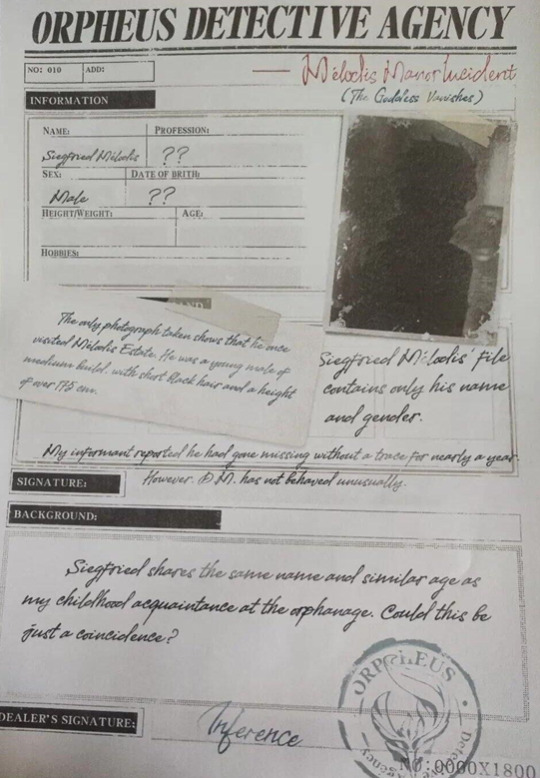 ORPHEUS DETECTIVE AGENCY
NO: 010 ADD:
— Mélodis Manor Incident
(The Goddess Vanishes)
INFORMATION
NAME: PROFESSION:
Siegfried Mélodis ??
SEX: DATE OF BRITH:
Male ??
HEIGHT/WEIGHT: AGE:
HOBBIES:
The only photograph taken shows that he once
visited Mélodis Estate. He was a young male of
medium build, with short black hair and a height
of over 175 cm.
Siegfried Mélodis' file
contains only his name
and gender.
My informant reported he had gone missing without a trace for nearly a year.
SIGNATURE: However. D.M. has not behaved unusually.
BACKGROUND:
Siegfried shares the same name and similar age as
my childhood acquaintance at the orphanage. Could this be
just a coincidence?
ORPHEUS
Detective Agency
DEALER'S SIGNATURE: Inference
NO:0000X1800